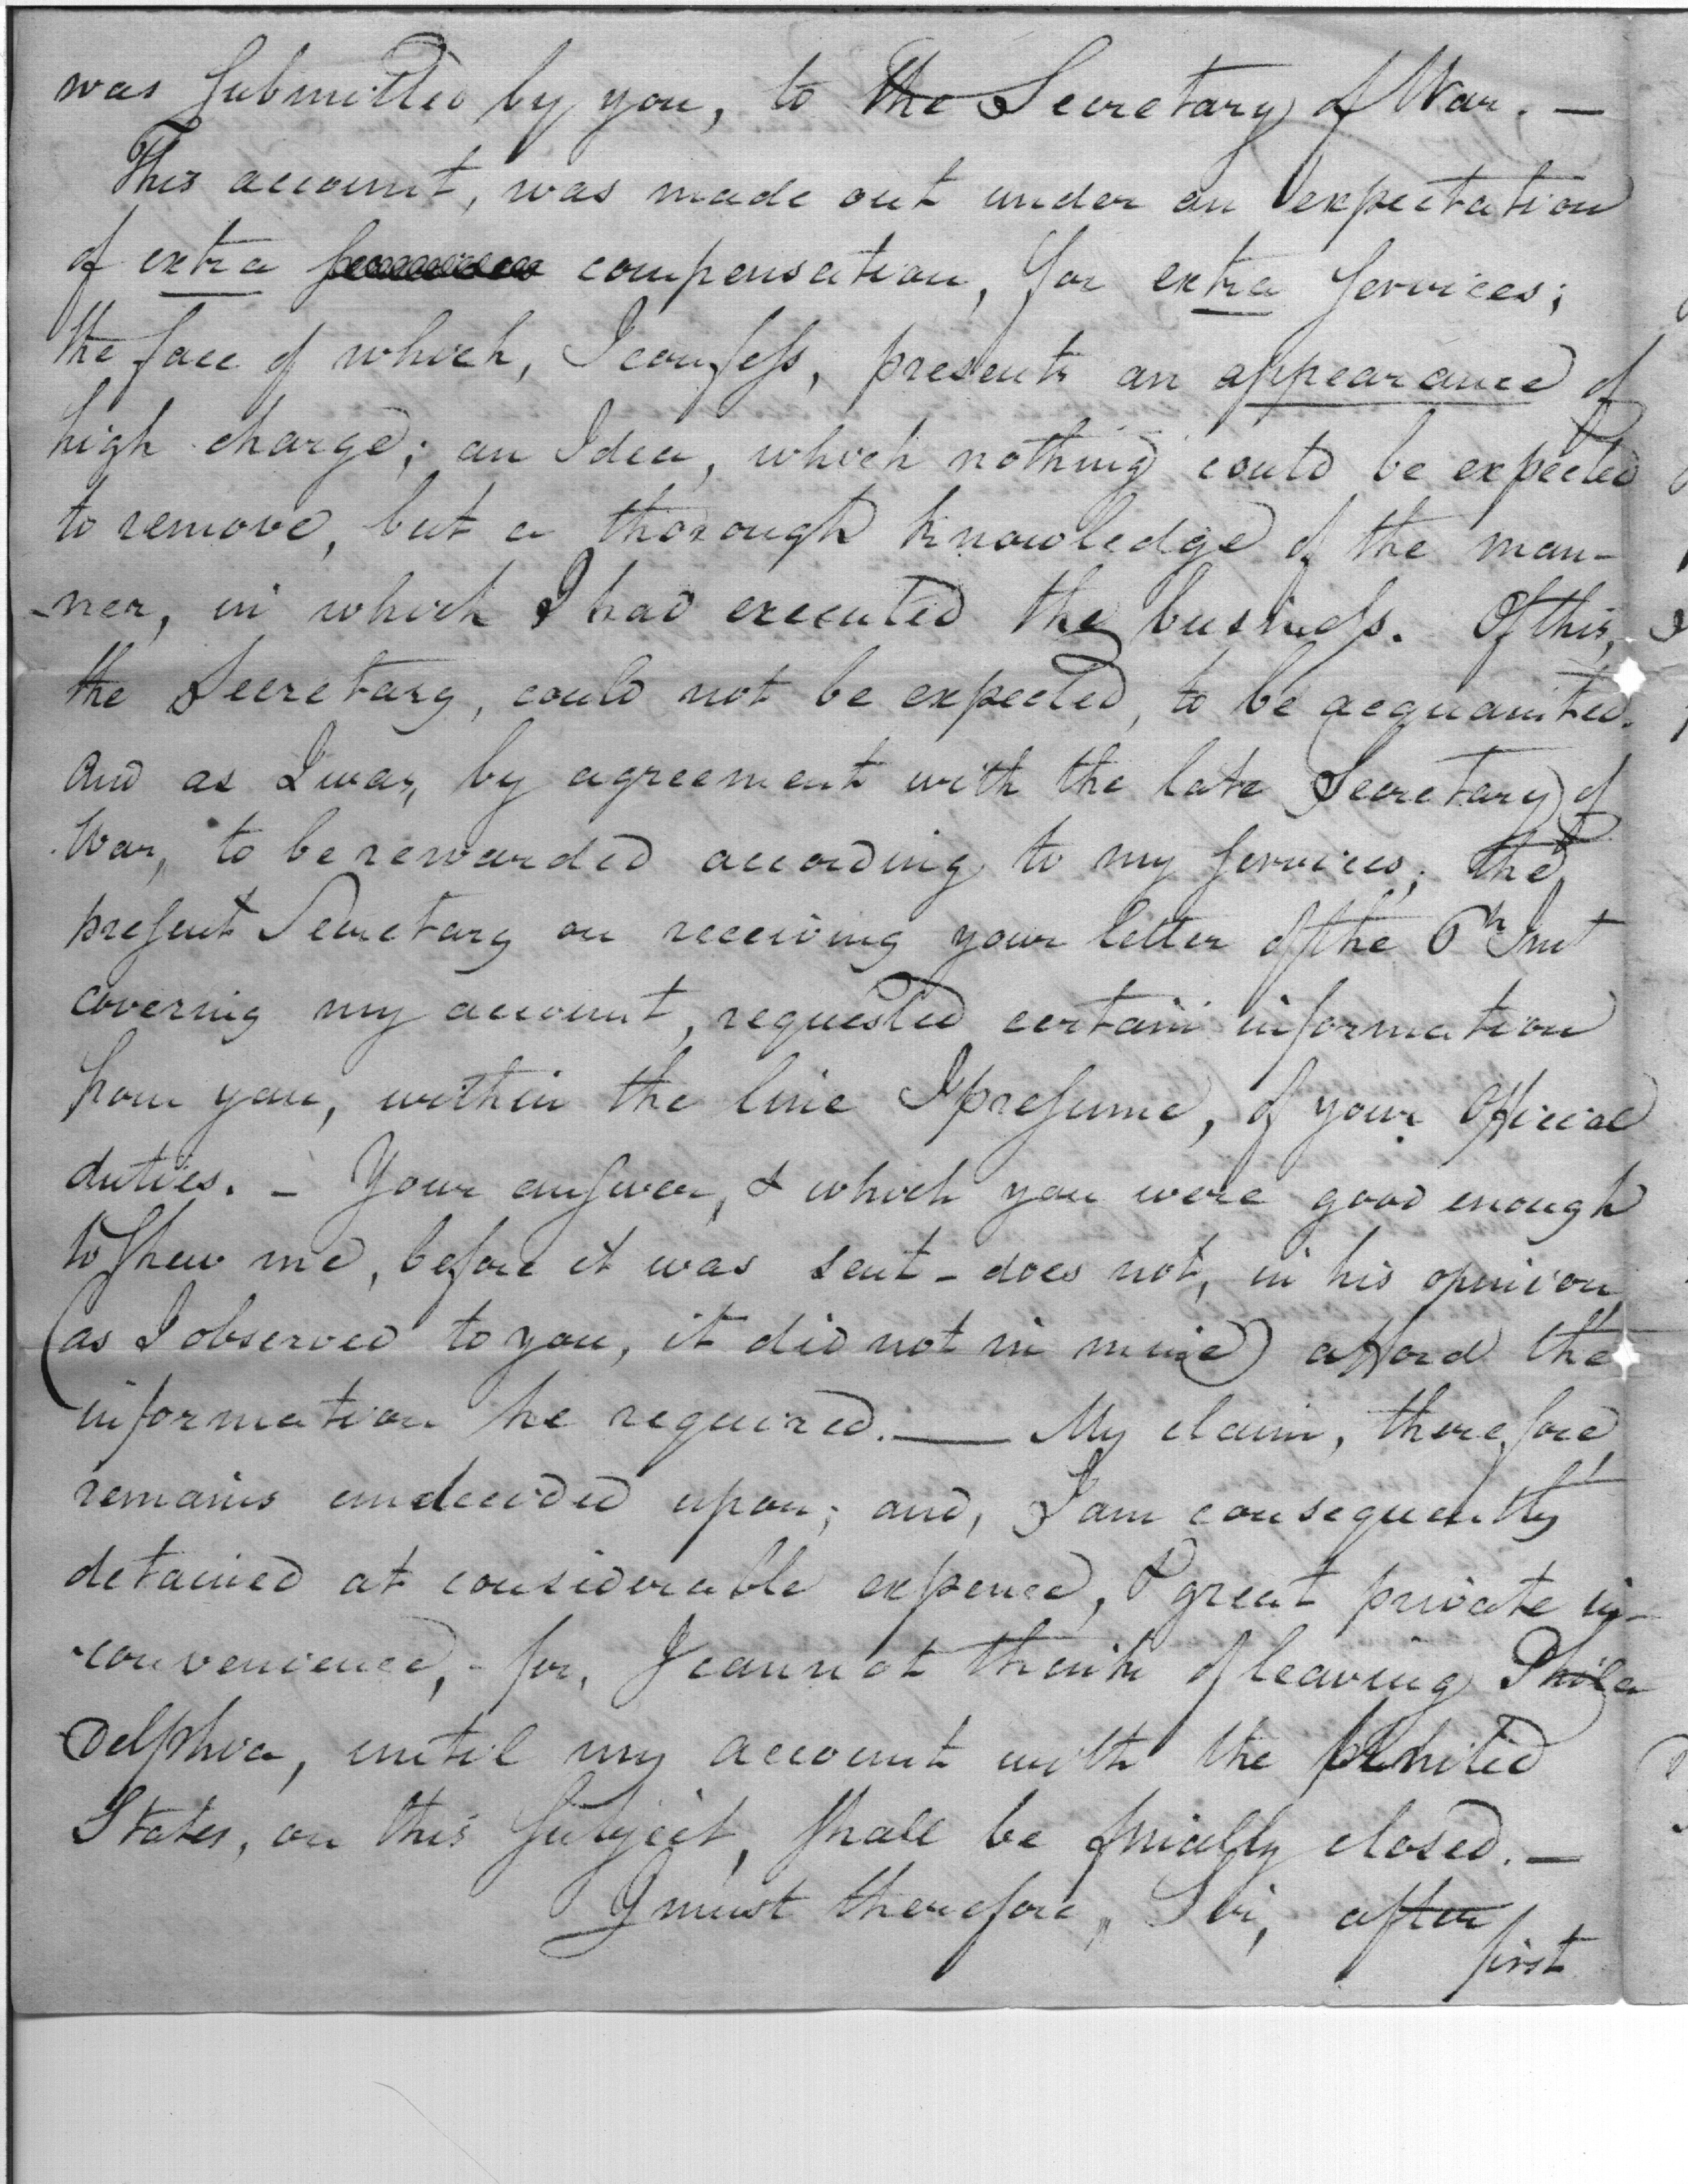 was Submitted by you, to the Secretary of War. —
This account, was made out under an expectation
of extra compensation, for extra Services;
the face of which, I confess, presents an appearance of
high charge; an Idea, which nothing could be expected
to remove, but a thorough knowledge of the man-
-ner, in which I had executed the business. Of this,
the Secretary, could not be expected, to be acquainted.
and as I was, by agreement with the late Secretary of
War, to be rewarded according to my Services; the
present Secretary on receiving your letter of the 6th Inst
covering my account, requested certain information
from you, within the line I presume, of your Official
duties. - Your answer, & which you were good enough
to shew me, before it was sent - does not, in his opinion
(as I observed to you, it did not in mine) afford the
information he required. — My claim, therefore
remains undecided upon; and, I am consequently
detained at considerable expence, & great private in-
-convenience, - for, I cannot think of leaving Phila
delphia, until my account with the United
States, on this Subject, shall be finally closed. —
I must therefore, Sir, after
first